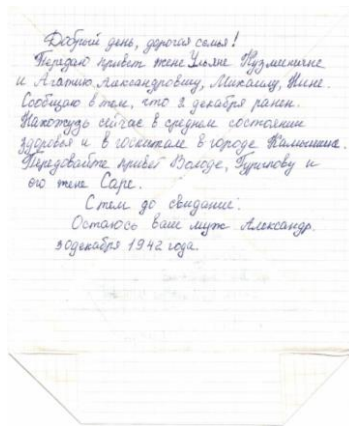 Добрый день, дорогая семья!
Передаю привет жене Ульяне Кузминичне
и Агатию Александровичу, Михаилу, Нине.
Сообщаю в том, что 2 декабря ранен.
Нахожусь сейчас в среднем состоянии
здоровья и в госпитале в городе Камышине.
Передовайте привет Володе, и
его жене Саре.
С тем до свидание.
Остаюсь ваш муж Александр.
30 декабря 1942 года.